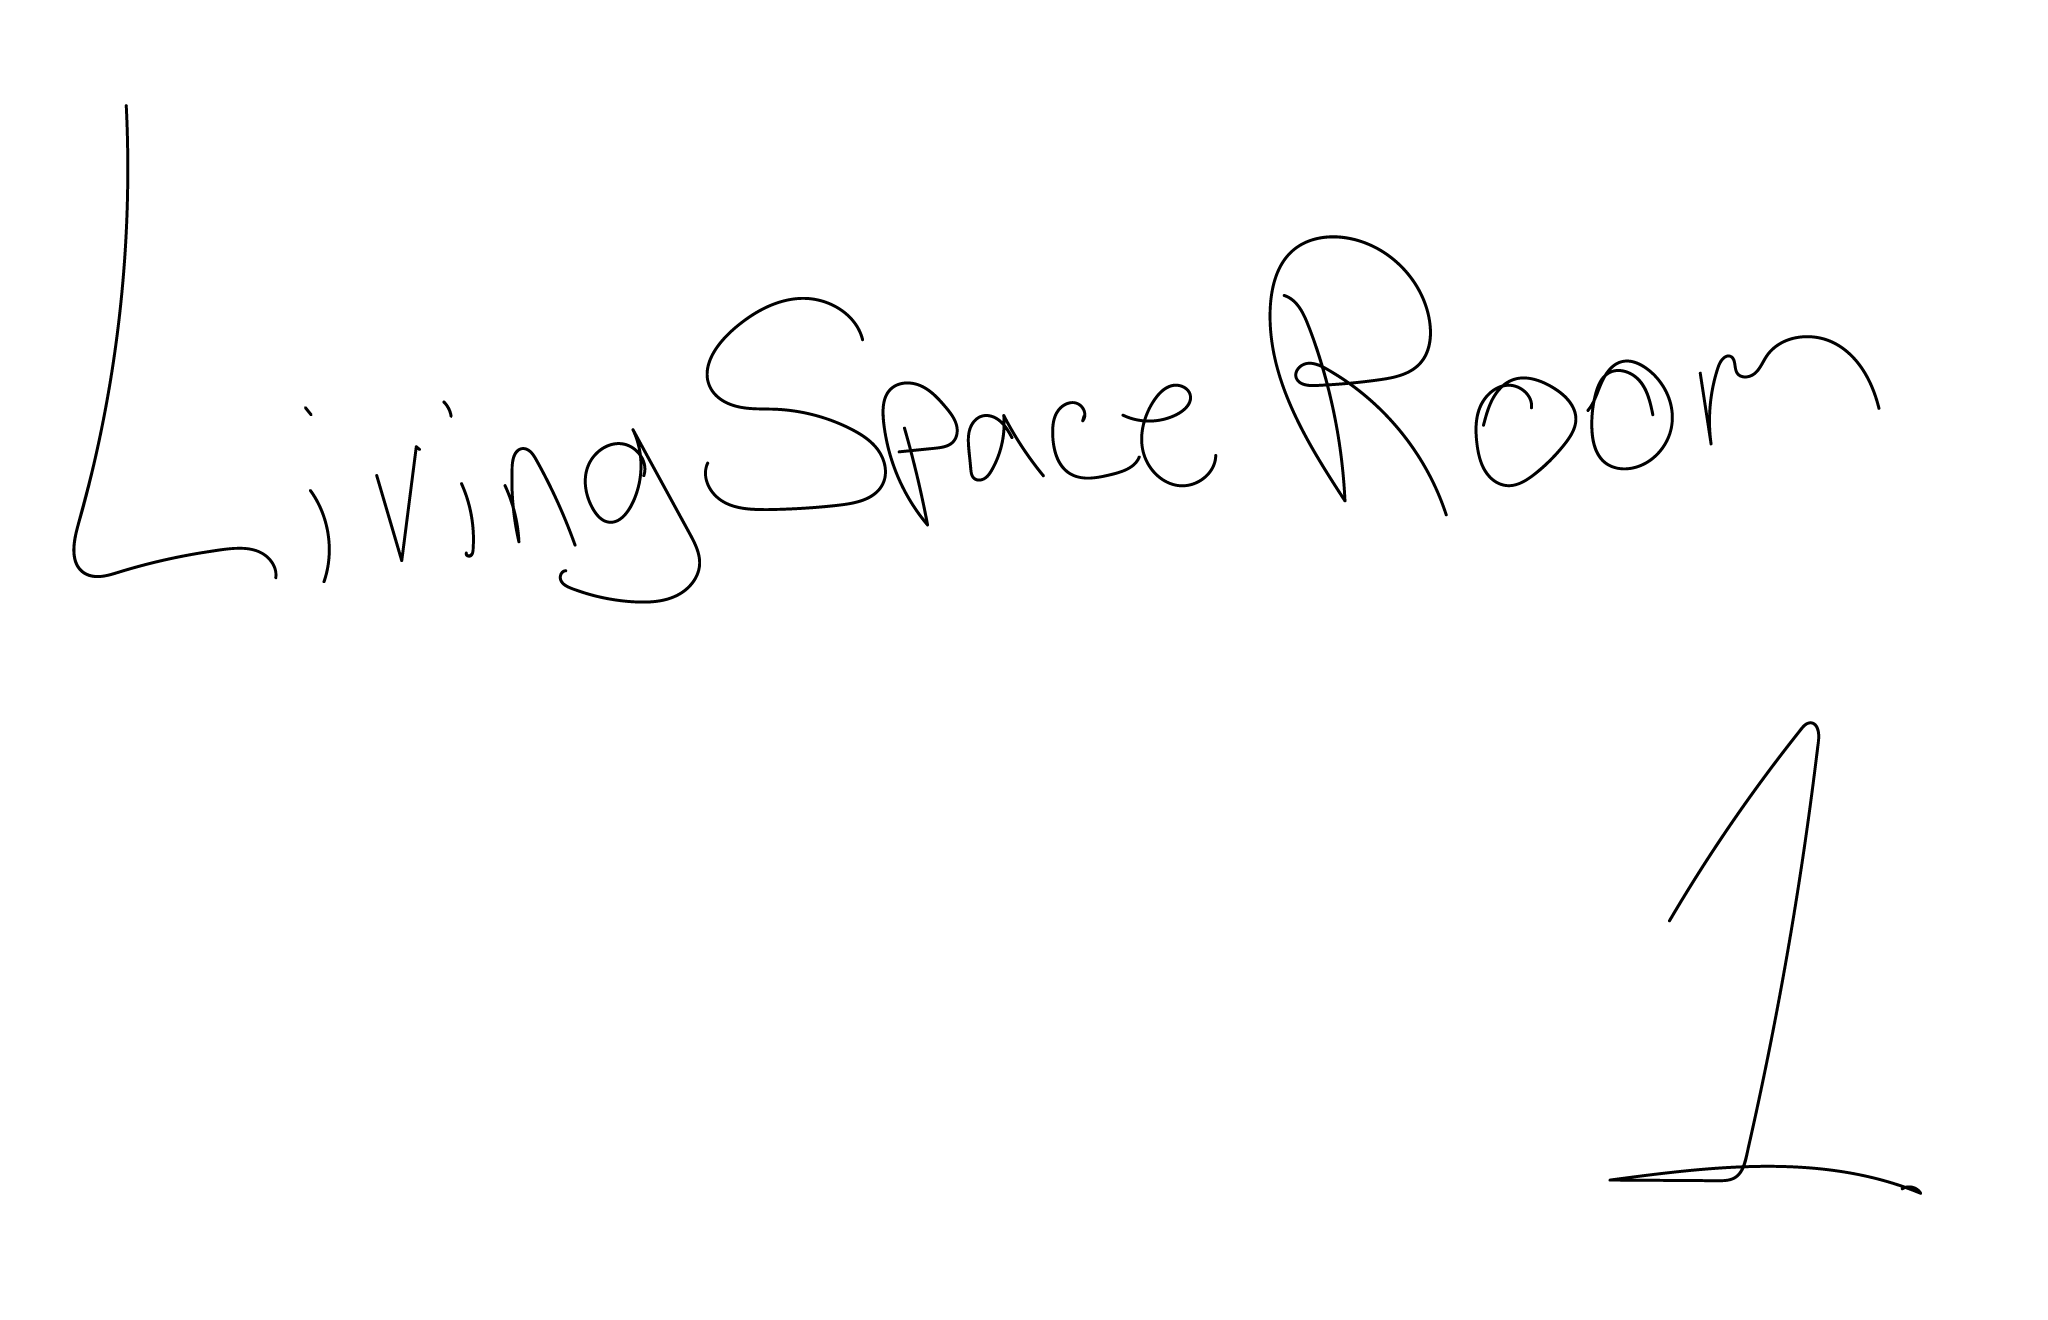 Living Space Room
1